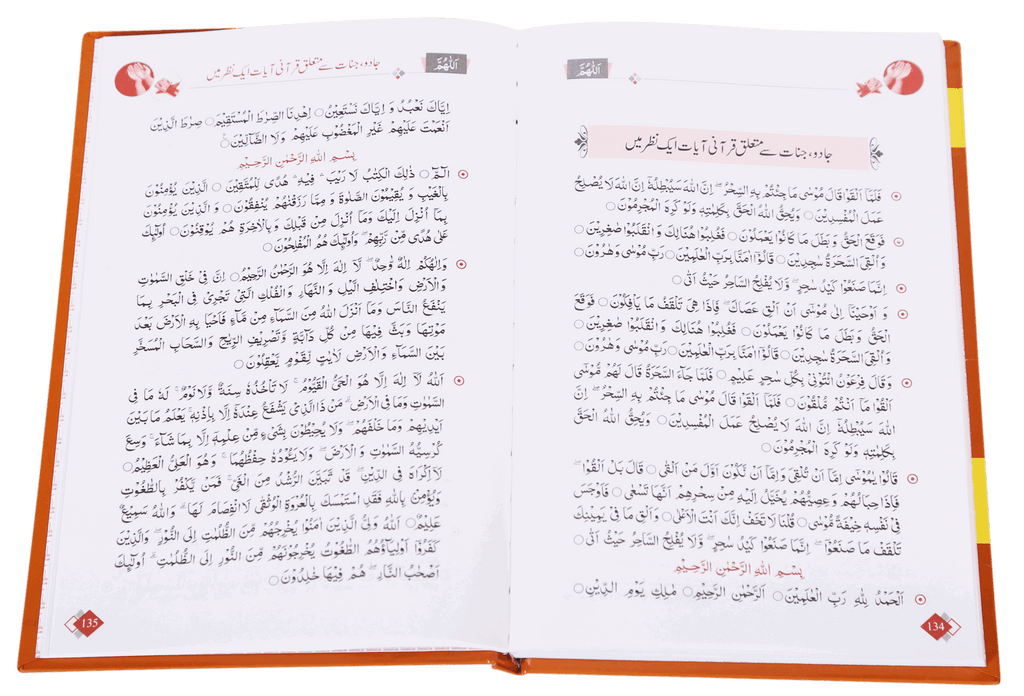 اَللّٰهُمَّ
جادو، جنات سے متعلق قرآنی آیات ایک نظر میں
فَلَمَّاۤ اَلْقَوْا قَالَ مُوْسٰى مَا جِئْتُمْ بِهِ السِّحْرُ ؕ اِنَّ اللهَ سَيُبْطِلُهٗ اِنَّ اللهَ لَا يُصْلِحُ
عَمَلَ الْمُفْسِدِيْنَ○ وَيُحِقُّ اللهُ الْحَقَّ بِكَلِمٰتِهٖ وَلَوْ كَرِهَ الْمُجْرِمُوْنَ○
فَوَقَعَ الْحَقُّ وَ بَطَلَ مَا كَانُوْا يَعْمَلُوْنَ○ فَغُلِبُوْا هُنَالِكَ وَ انْقَلَبُوْا صٰغِرِيْنَ○
وَ اُلْقِىَ السَّحَرَةُ سٰجِدِيْنَ○ قَالُوْۤا اٰمَنَّا بِرَبِّ الْعٰلَمِيْنَ○ رَبِّ مُوْسٰى وَ هٰرُوْنَ○
اِنَّمَا صَنَعُوْا كَيْدُ سٰحِرٍ ؕ وَلَا يُفْلِحُ السَّاحِرُ حَيْثُ اَتٰى○
وَ اَوْحَيْنَاۤ اِلٰى مُوْسٰۤى اَنْ اَلْقِ عَصَاكَ ۚ فَاِذَا هِىَ تَلْقَفُ مَا يَاْفِكُوْنَ○ فَوَقَعَ
الْحَقُّ وَ بَطَلَ مَا كَانُوْا يَعْمَلُوْنَ○ فَغُلِبُوْا هُنَالِكَ وَ انْقَلَبُوْا صٰغِرِيْنَ○
وَ اُلْقِىَ السَّحَرَةُ سٰجِدِيْنَ○ قَالُوْۤا اٰمَنَّا بِرَبِّ الْعٰلَمِيْنَ○ رَبِّ مُوْسٰى وَ هٰرُوْنَ○
وَ قَالَ فِرْعَوْنُ ائْتُوْنِىْ بِكُلِّ سٰحِرٍ عَلِيْمٍ○ فَلَمَّا جَآءَ السَّحَرَةُ قَالَ لَهُمْ مُّوْسٰۤى
اَلْقُوْا مَاۤ اَنْتُمْ مُّلْقُوْنَ○ فَلَمَّاۤ اَلْقَوْا قَالَ مُوْسٰى مَا جِئْتُمْ بِهِ السِّحْرُ ؕ اِنَّ
اللهَ سَيُبْطِلُهٗ ؕ اِنَّ اللهَ لَا يُصْلِحُ عَمَلَ الْمُفْسِدِيْنَ○ وَيُحِقُّ اللهُ الْحَقَّ
بِكَلِمٰتِهٖ وَلَوْ كَرِهَ الْمُجْرِمُوْنَ○
قَالُوْا يٰمُوْسٰۤى اِمَّاۤ اَنْ تُلْقِىَ وَ اِمَّاۤ اَنْ نَّكُوْنَ اَوَّلَ مَنْ اَلْقٰى○ قَالَ بَلْ اَلْقُوْا ۚ
فَاِذَا حِبَالُهُمْ وَ عِصِيُّهُمْ يُخَيَّلُ اِلَيْهِ مِنْ سِحْرِهِمْ اَنَّهَا تَسْعٰى○ فَاَوْجَسَ
فِىْ نَفْسِهٖ خِيْفَةً مُّوْسٰى○ قُلْنَا لَا تَخَفْ اِنَّكَ اَنْتَ الْاَعْلٰى○ وَ اَلْقِ مَا فِىْ يَمِيْنِكَ
تَلْقَفْ مَا صَنَعُوْا ؕ اِنَّمَا صَنَعُوْا كَيْدُ سٰحِرٍ ؕ وَلَا يُفْلِحُ السَّاحِرُ حَيْثُ اَتٰى○
بِسْمِ اللهِ الرَّحْمٰنِ الرَّحِيْمِ
اَلْحَمْدُ لِلّٰهِ رَبِّ الْعٰلَمِيْنَ○ اَلرَّحْمٰنِ الرَّحِيْمِ○ مٰلِكِ يَوْمِ الدِّيْنِ○
134
اَللّٰهُمَّ
جادو، جنات سے متعلق قرآنی آیات ایک نظر میں
اِيَّاكَ نَعْبُدُ وَ اِيَّاكَ نَسْتَعِيْنُ○ اِهْدِنَا الصِّرَاطَ الْمُسْتَقِيْمَ○ صِرَاطَ الَّذِيْنَ
اَنْعَمْتَ عَلَيْهِمْ غَيْرِ الْمَغْضُوْبِ عَلَيْهِمْ وَلَا الضَّآلِّيْنَ○
بِسْمِ اللهِ الرَّحْمٰنِ الرَّحِيْمِ
الٓمّٓ○ ذٰلِكَ الْكِتٰبُ لَا رَيْبَ ۛ فِيْهِ ۛ هُدًى لِّلْمُتَّقِيْنَ○ الَّذِيْنَ يُؤْمِنُوْنَ
بِالْغَيْبِ وَ يُقِيْمُوْنَ الصَّلٰوةَ وَ مِمَّا رَزَقْنٰهُمْ يُنْفِقُوْنَ○ وَ الَّذِيْنَ يُؤْمِنُوْنَ
بِمَاۤ اُنْزِلَ اِلَيْكَ وَمَاۤ اُنْزِلَ مِنْ قَبْلِكَ وَ بِالْاٰخِرَةِ هُمْ يُوْقِنُوْنَ○ اُولٰٓئِكَ
عَلٰى هُدًى مِّنْ رَّبِّهِمْ ۗ وَ اُولٰٓئِكَ هُمُ الْمُفْلِحُوْنَ○
وَ اِلٰهُكُمْ اِلٰهٌ وَّاحِدٌ ۚ لَاۤ اِلٰهَ اِلَّا هُوَ الرَّحْمٰنُ الرَّحِيْمُ○ اِنَّ فِىْ خَلْقِ السَّمٰوٰتِ
وَ الْاَرْضِ وَ اخْتِلَافِ الَّيْلِ وَ النَّهَارِ وَ الْفُلْكِ الَّتِىْ تَجْرِىْ فِى الْبَحْرِ بِمَا
يَنْفَعُ النَّاسَ وَ مَاۤ اَنْزَلَ اللهُ مِنَ السَّمَآءِ مِنْ مَّآءٍ فَاَحْيَا بِهِ الْاَرْضَ بَعْدَ
مَوْتِهَا وَ بَثَّ فِيْهَا مِنْ كُلِّ دَآبَّةٍ وَّ تَصْرِيْفِ الرِّيٰحِ وَ السَّحَابِ الْمُسَخَّرِ
بَيْنَ السَّمَآءِ وَ الْاَرْضِ لَاٰيٰتٍ لِّقَوْمٍ يَّعْقِلُوْنَ○
اَللهُ لَاۤ اِلٰهَ اِلَّا هُوَ الْحَىُّ الْقَيُّوْمُ ۚ لَا تَاْخُذُهٗ سِنَةٌ وَّلَا نَوْمٌ ؕ لَهٗ مَا فِى
السَّمٰوٰتِ وَمَا فِى الْاَرْضِ ؕ مَنْ ذَا الَّذِىْ يَشْفَعُ عِنْدَهٗۤ اِلَّا بِاِذْنِهٖ ؕ يَعْلَمُ مَا بَيْنَ
اَيْدِيْهِمْ وَمَا خَلْفَهُمْ ۚ وَلَا يُحِيْطُوْنَ بِشَىْءٍ مِّنْ عِلْمِهٖۤ اِلَّا بِمَا شَآءَ ۚ وَسِعَ
كُرْسِيُّهُ السَّمٰوٰتِ وَ الْاَرْضَ ۚ وَلَا يَـُٔوْدُهٗ حِفْظُهُمَا ۚ وَهُوَ الْعَلِىُّ الْعَظِيْمُ○
لَاۤ اِكْرَاهَ فِى الدِّيْنِ ۙ قَدْ تَّبَيَّنَ الرُّشْدُ مِنَ الْغَىِّ ۚ فَمَنْ يَّكْفُرْ بِالطَّاغُوْتِ
وَ يُؤْمِنْۢ بِاللهِ فَقَدِ اسْتَمْسَكَ بِالْعُرْوَةِ الْوُثْقٰى لَا انْفِصَامَ لَهَا ؕ وَ اللهُ سَمِيْعٌ
عَلِيْمٌ○ اَللهُ وَلِىُّ الَّذِيْنَ اٰمَنُوْا يُخْرِجُهُمْ مِّنَ الظُّلُمٰتِ اِلَى النُّوْرِ ؕ وَ الَّذِيْنَ
كَفَرُوْۤا اَوْلِيٰٓـُٔهُمُ الطَّاغُوْتُ يُخْرِجُوْنَهُمْ مِّنَ النُّوْرِ اِلَى الظُّلُمٰتِ ؕ اُولٰٓئِكَ
اَصْحٰبُ النَّارِ ۚ هُمْ فِيْهَا خٰلِدُوْنَ○
135